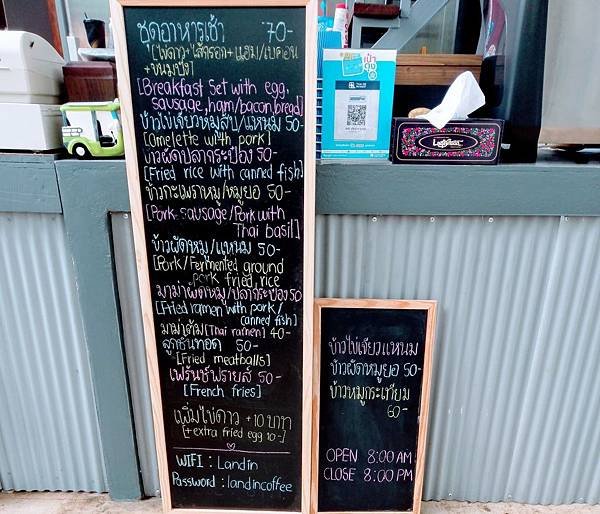 ชุดอาหารเช้า 70-
[ไข่ดาว+ไส้กรอก+แฮม/เบคอน
+ขนมปัง]
[Breakfast Set with egg,
sausage, ham/bacon, bread]
ข้าวไข่เจียวหมูสับ/แหนม 50-
[Omelette with pork]
ข้าวผัดปลากระป๋อง 50-
[Fried rice with canned fish]
ข้าวกะเพราหมู/หมูยอ 50-
[Pork-sausage/Pork with
Thai basil]
ข้าวผัดหมู/แหนม 50-
[Pork/Fermented ground
pork fried rice
มาม่าผัดหมู/ปลากระป๋อง 50
[Fried ramen with pork/
canned fish]
มาม่าต้ม [Thai ramen] 40-
ลูกชิ้นทอด 50-
[Fried meatballs]
เฟร้นช์ฟรายส์ 50-
[French fries]
เพิ่มไข่ดาว +10 บาท
[+extra fried egg 10-]
WIFI : Landin
Password : landincoffee
ข้าวไข่เจียวแหนม
ข้าวผัดหมูยอ 50-
ข้าวหมูกระเทียม
60-
OPEN 8:00 AM
CLOSE 8:00 PM
เป๋า
ตุง